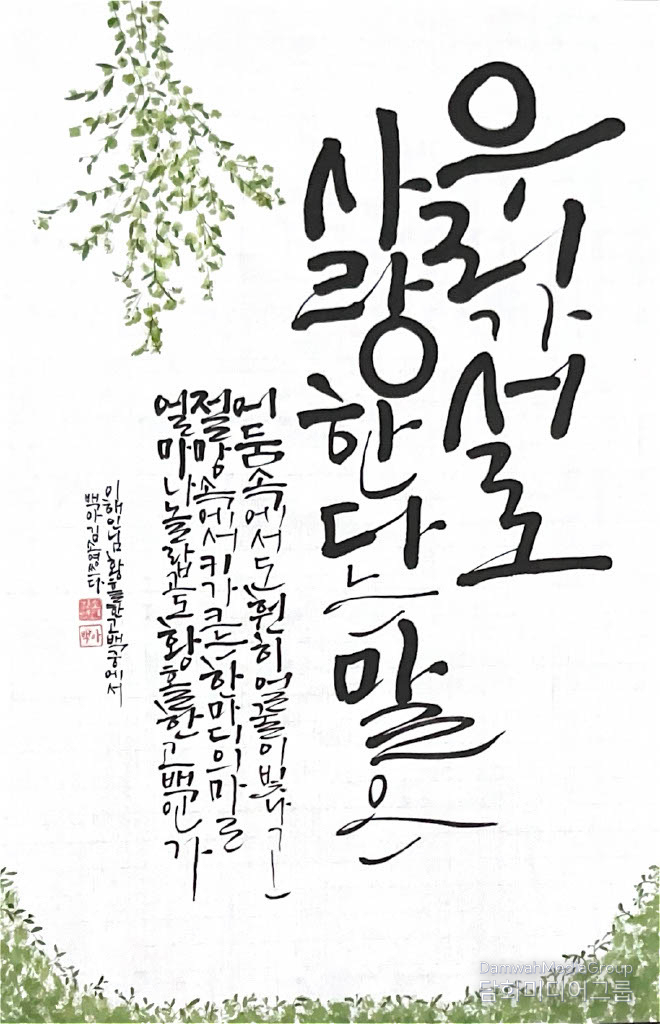 우리가 서로
사랑한다는 말은
어둠속에서도 훤히 얼굴이 빛나고
절망속에서 키가 크는 한마디의 말
얼마나 놀랍고도 황홀한 고백인가
이해인님 황홀한고백 중에서
백아 김소영 쓰다
백아
DamwahMediaGroup
담화미디어그룹